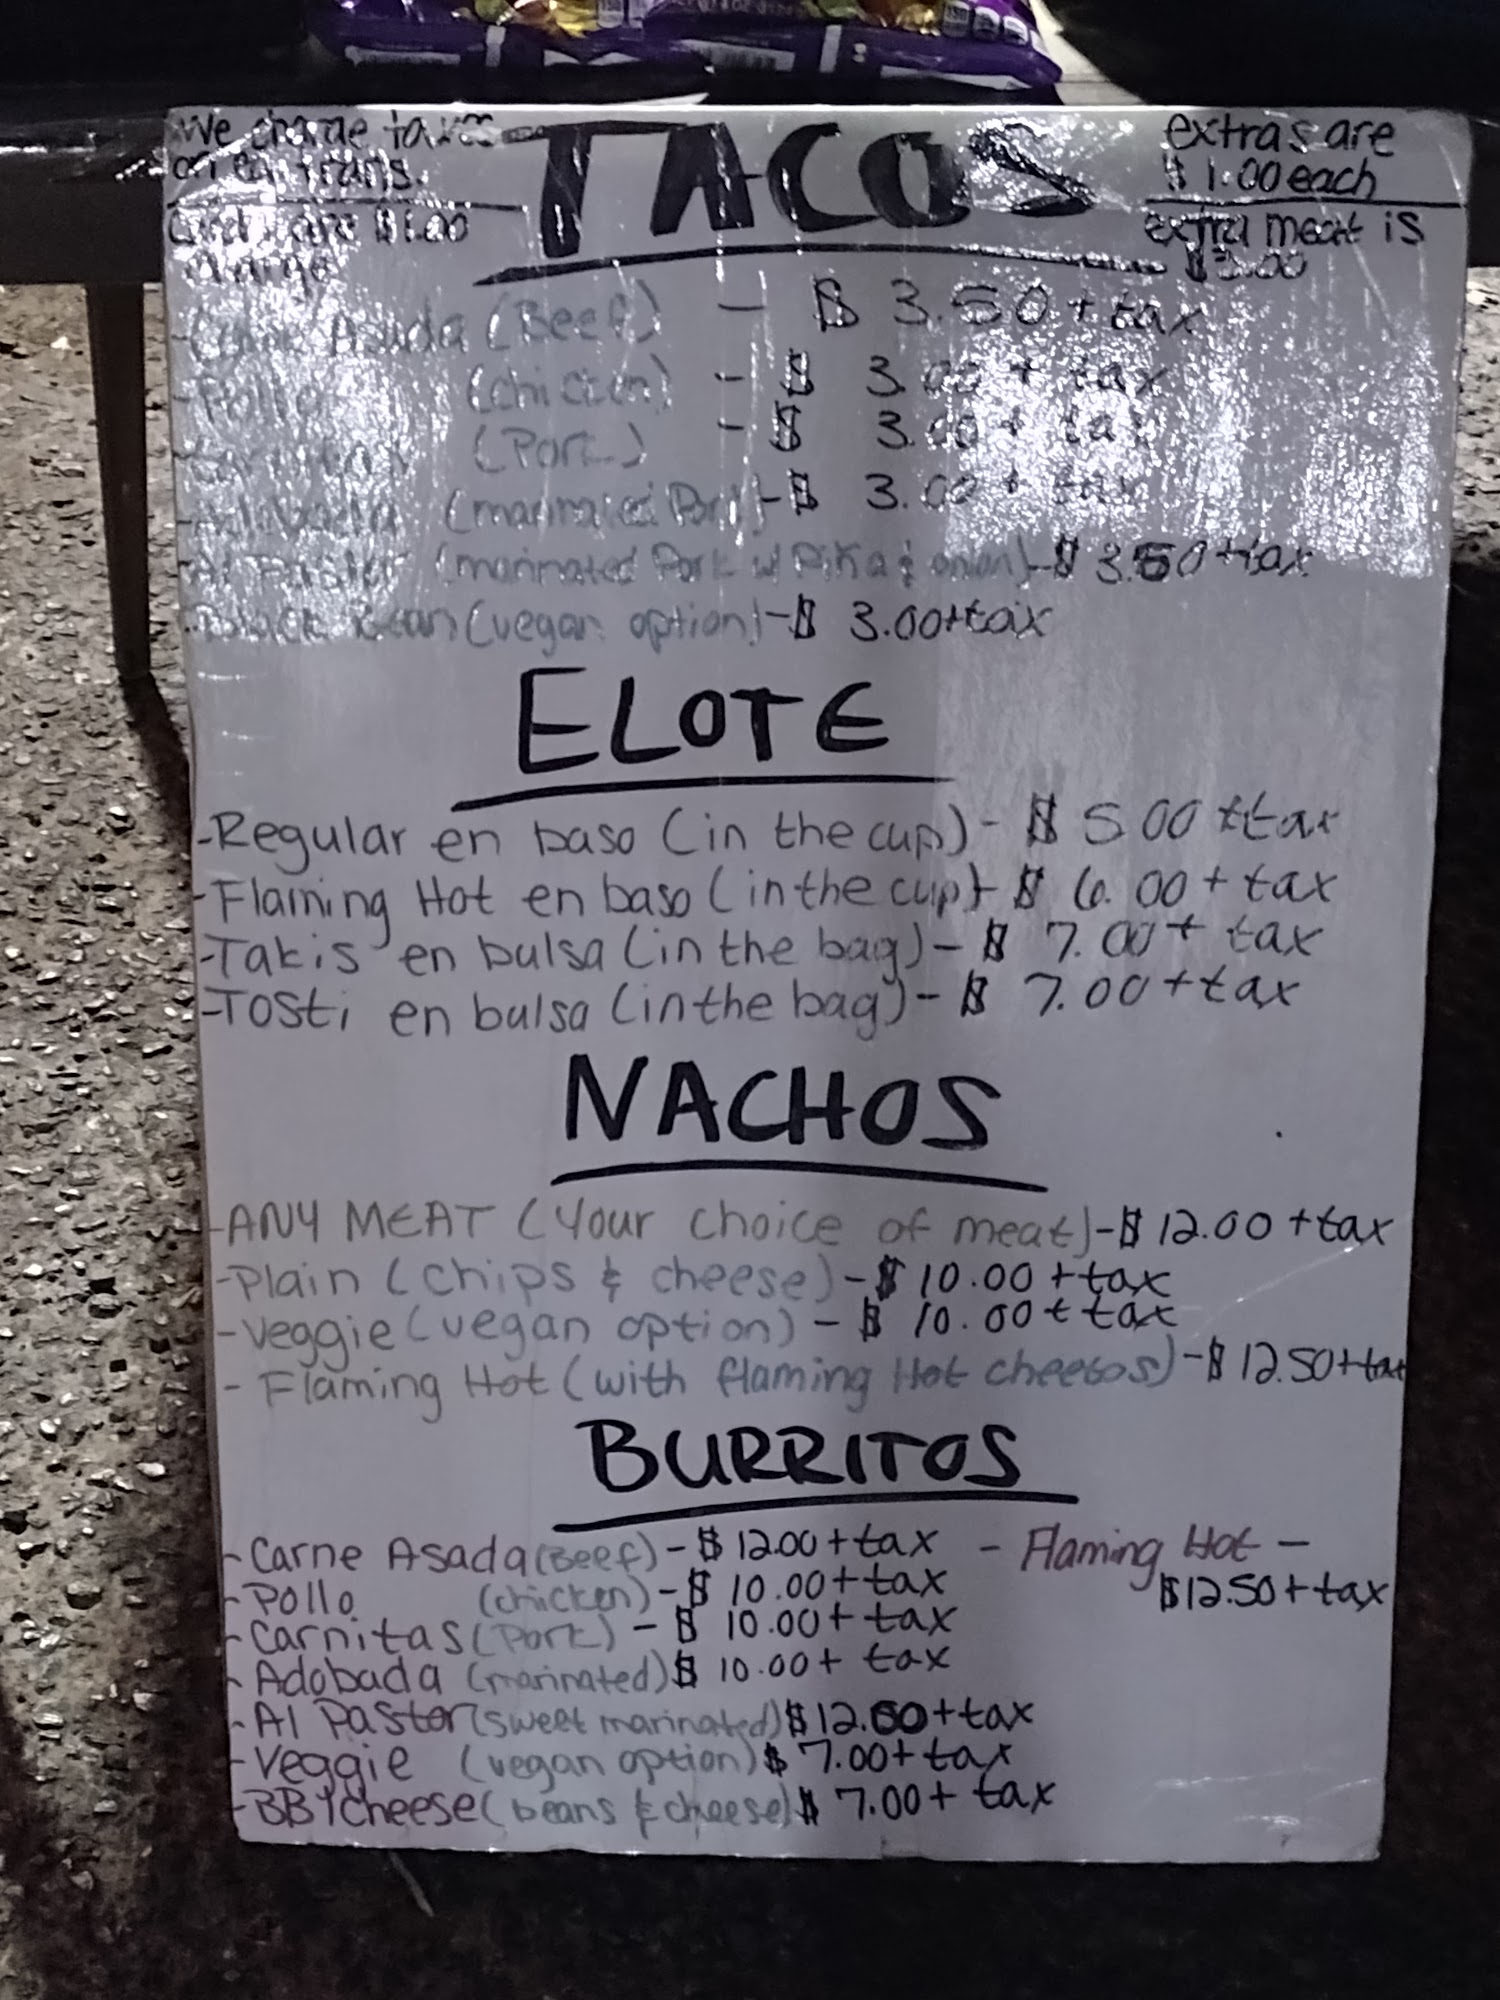 We charge taxes
on all trans.
Cards are $1.00
charge
TACOS
extras are
$1.00 each
extra meat is
$3.00
-Carne Asada (Beef) - $ 3.50 + tax
-Pollo (chicken) - $ 3.00 + tax
-Carnitas (Pork) - $ 3.00 + tax
-Adobada (marinated Pork)-$ 3.00 + tax
-Al Pastor (marinated Pork w/ Piña & onion)-$ 3.50+tax
-Black Bean (vegan option)-$ 3.00+tax
ELOTE
-Regular en baso (in the cup)- $ 5.00 +tax
-Flaming Hot en baso (in the cup)- $ 6.00 + tax
-Takis en bulsa (in the bag)- $ 7.00 + tax
-Tosti en bulsa (in the bag)- $ 7.00 + tax
NACHOS
-ANY MEAT (Your choice of meat)-$ 12.00 +tax
-Plain (chips & cheese)-$ 10.00 +tax
-Veggie (vegan option) - $ 10.00 + tax
- Flaming Hot (with flaming Hot cheetos)-$ 12.50+tax
BURRITOS
-Carne Asada (Beef)-$ 12.00 + tax
-Pollo (chicken)-$ 10.00+tax
-Carnitas (Pork) - $ 10.00+ tax
-Adobada (marinated)$ 10.00+ tax
-Al Pastor (sweet marinated)$12.00+tax
-Veggie (vegan option)$ 7.00+ tax
-BBYCheese (beans & cheese)$ 7.00+ tax
- Flaming Hot -
$12.50+tax